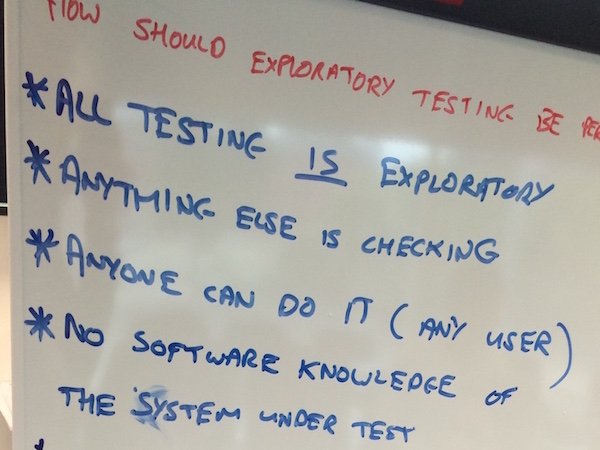 HOW SHOULD EXPLORATORY TESTING BE
* ALL TESTING IS EXPLORATORY
* ANYTHING ELSE IS CHECKING
* ANYONE CAN DO IT (ANY USER)
* NO SOFTWARE KNOWLEDGE OF
THE SYSTEM UNDER TEST